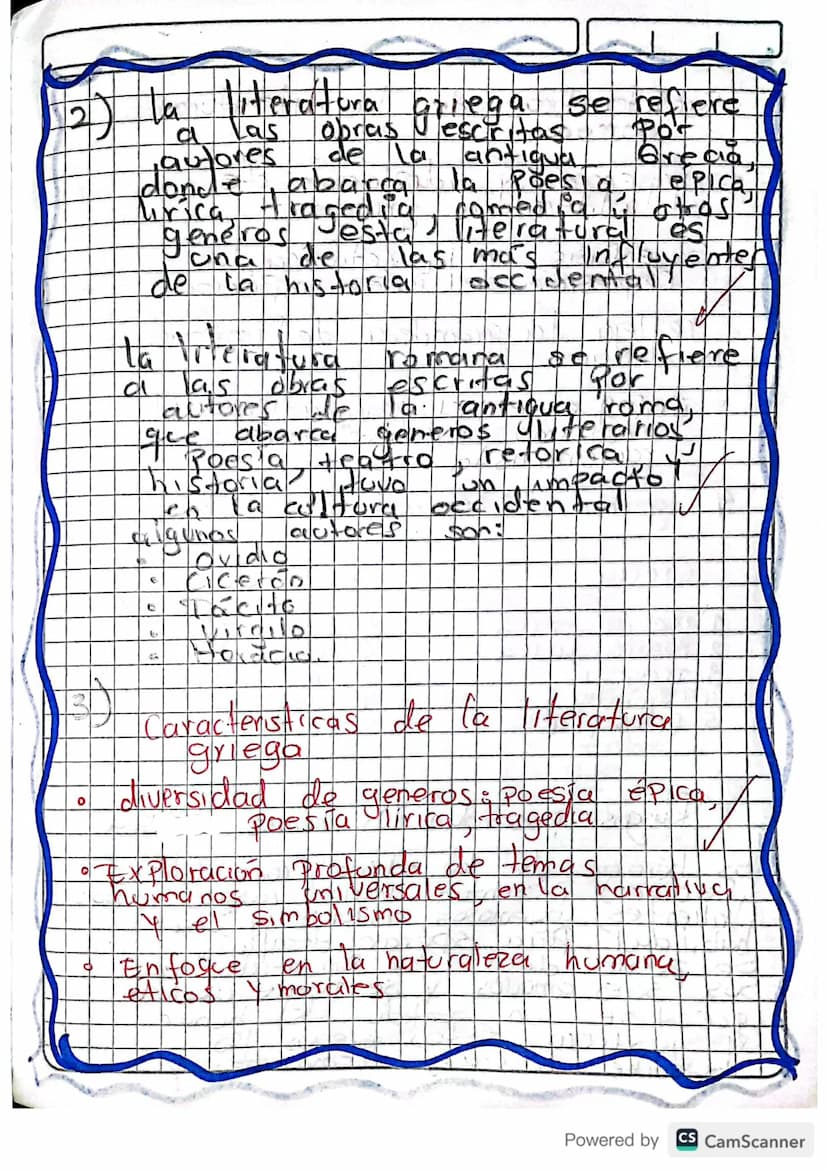 2) la literatura griega se refiere
a las obras escritas por
autores de la antigua Grecia,
donde abarca la poesia, epica,
lirica, tragedia, comedia y otros
generos esta literatural es
una de las mas influyentes
de la historia occidental
la literatura romana se refiere
a las obras escritas por
autores de la antigua roma,
que abarca generos literarios
poesia, teatro, retorica y
historia, tuvo un impacto
en la cultura occidental
algunos autores son:
• Ovidio
• Cicerón
• Tácito
• Virgilo
• Horacio.
3) Caracteristicas de la literatura
griega
• diversidad de generos: poesia épica,
poesía lirica, tragedia
• Exploración profunda de temas
humanos universales, en la narrativa
y el simbolismo
• Enfoque en la naturaleza humana,
eticos y morales
Powered by CS CamScanner